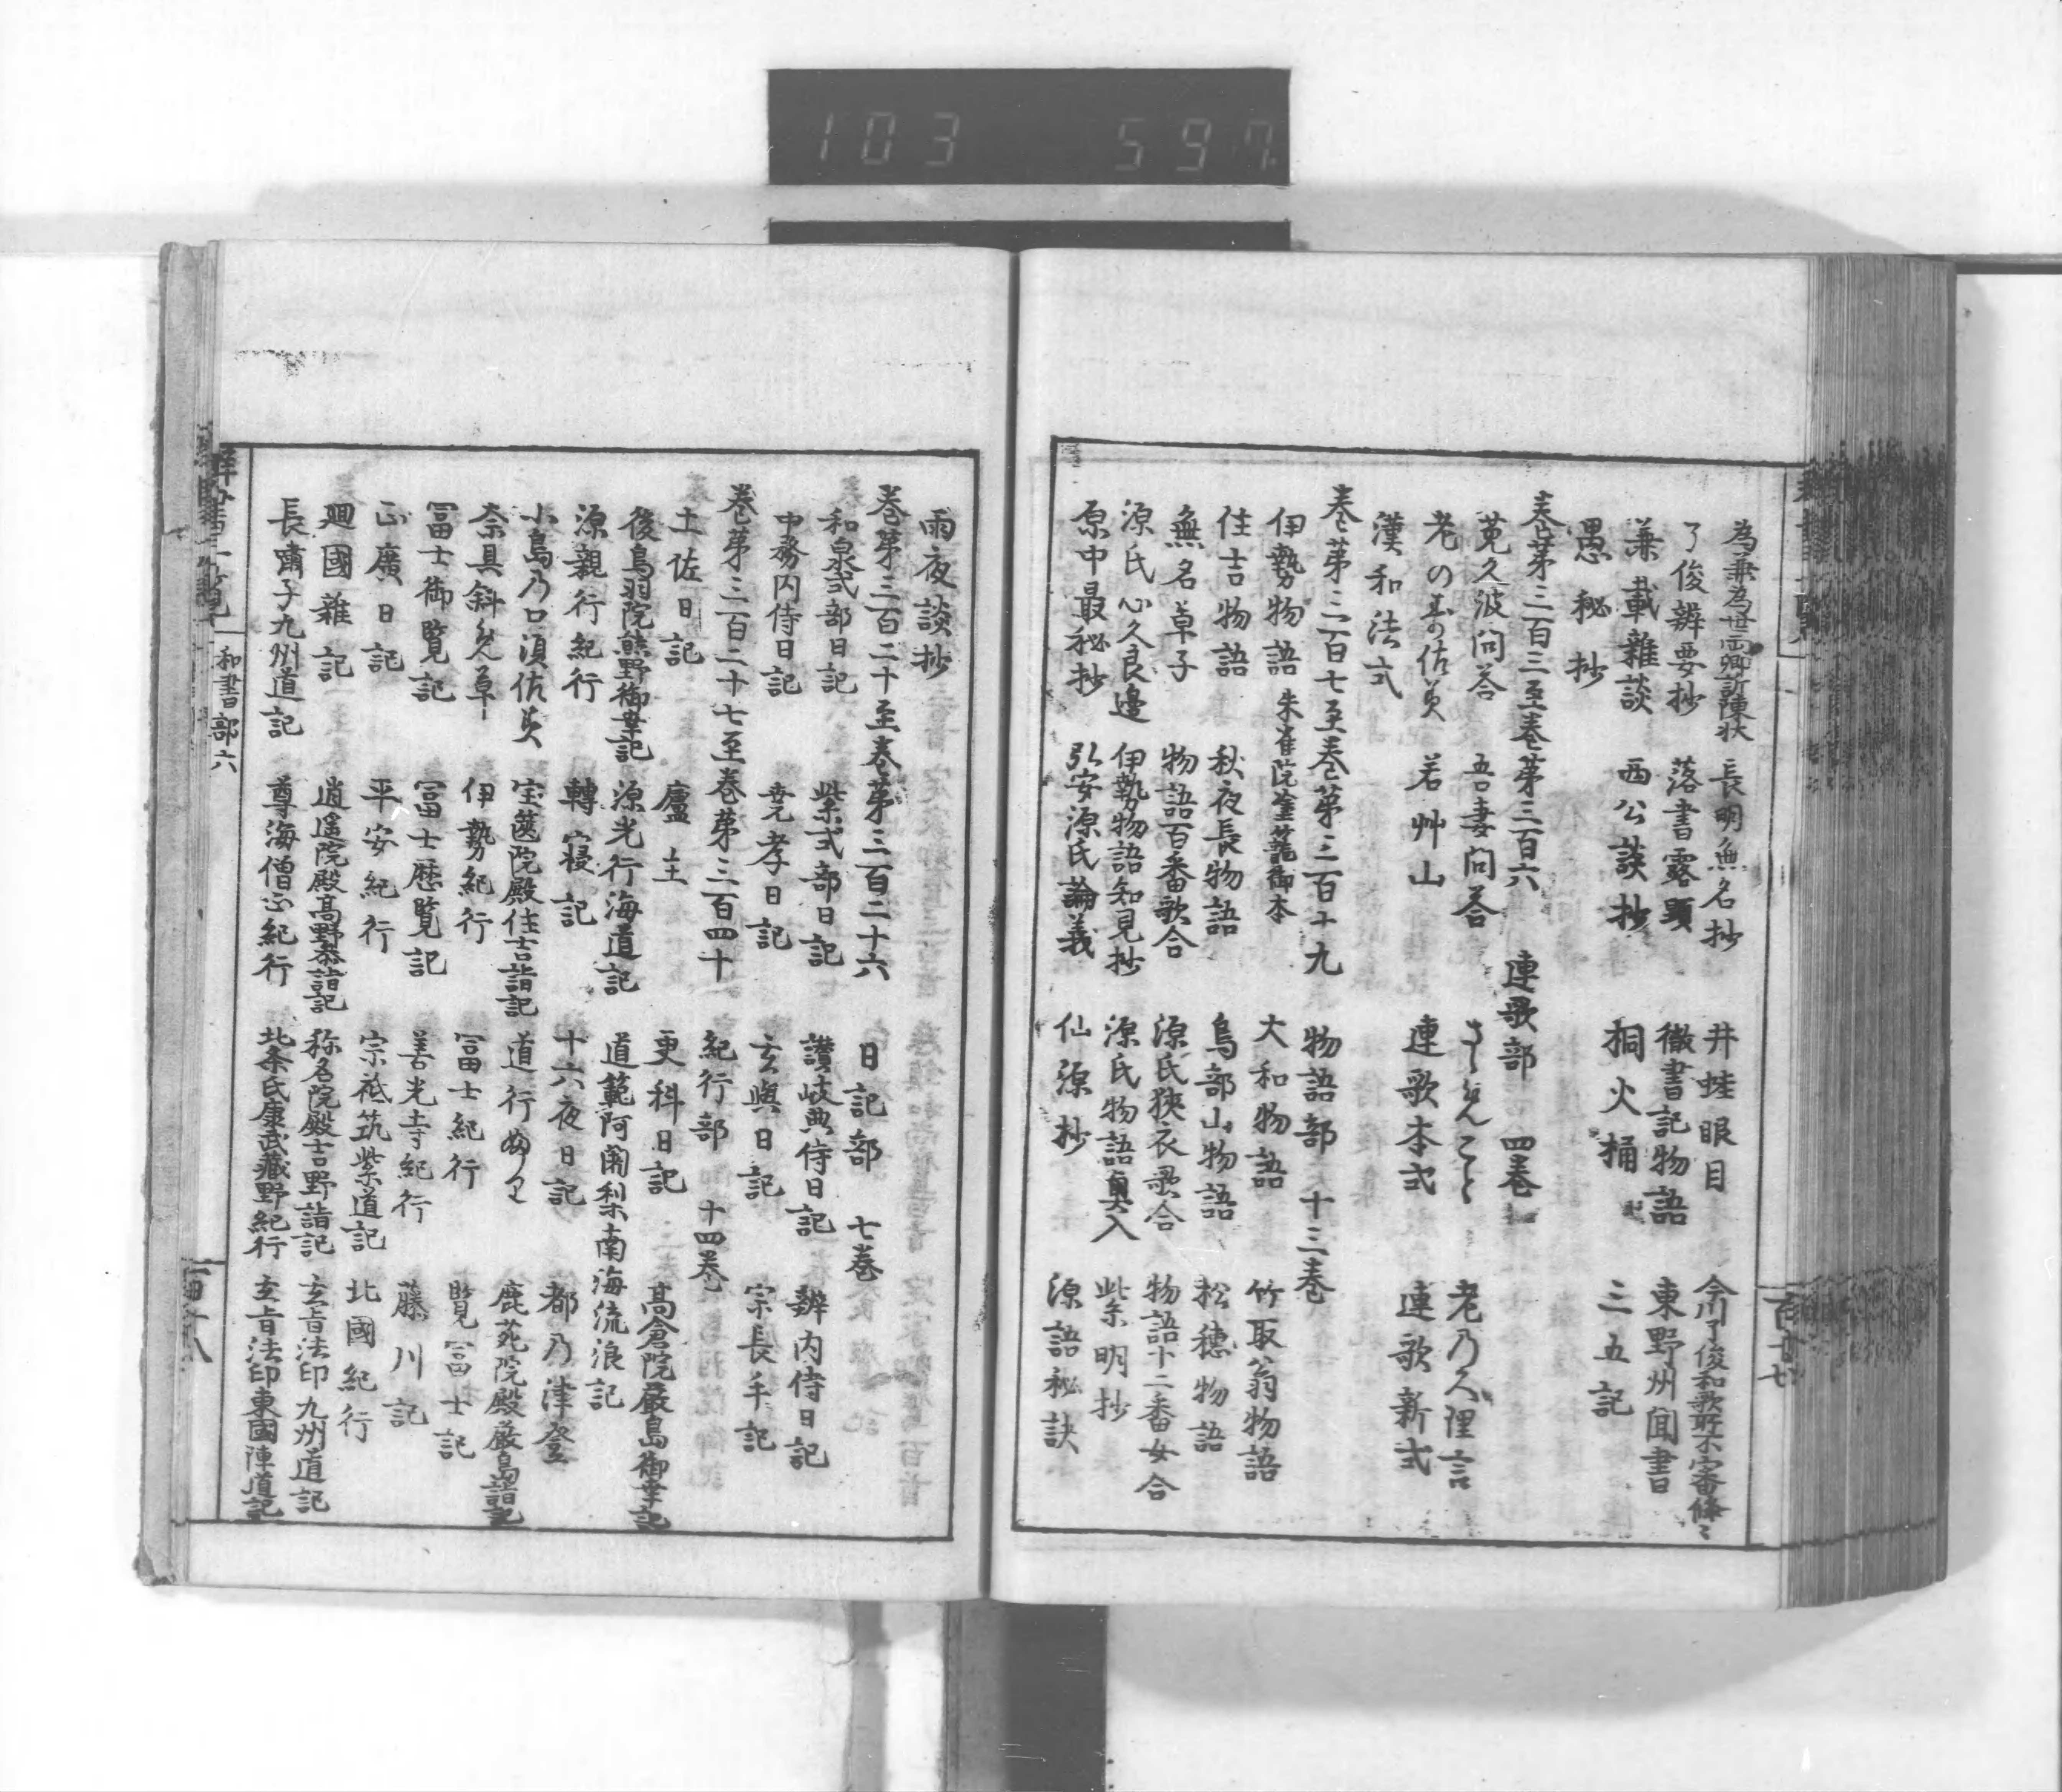 103 597
為兼為世両卿訴陳状 長明無名抄 井蛙眼目 今川了俊和歌所不審條々
了俊辨要抄 落書露顕 徹書記物語 東野州聞書
兼載雜談 西公談抄 桐火桶 三五記
愚秘抄
巻第三百三至巻第三百六 連歌部 四巻
菟久波問荅 吾妻問荅 老乃久里言
老のすさ 若艸山 連歌本式 連歌新式
漢和法式
巻第三百七至巻第三百十九 物語部 十三巻
伊勢物語 朱雀院塗籠御本 大和物語 竹取翁物語
住吉物語 秋夜長物語 鳥部山物語 松穗物語
無名草子 物語百番歌合 源氏狹衣歌合 物語十二番女合
源氏心久良邊 伊勢物語知見抄 源氏物語奥入 紫明抄
原中最秘抄 弘安源氏論義 仙源抄 源語秘訣
雨夜談抄
巻第三百二十至巻第三百二十六 日記部 七巻
和泉式部日記 紫式部日記 讃岐典侍日記 辨内侍日記
中務内侍日記 尭孝日記 玄與日記 宗長手記
巻第三百二十七至巻第三百四十 紀行部 十四巻
土佐日記 廬主 更科日記 高倉院嚴島御幸記
後鳥羽院熊野御幸記 源光行海道記 道範阿闍梨南海流浪記
源親行紀行 轉寝記 十六夜日記 都乃津登
小島乃口須佐美 宝篋院殿住吉詣記 道行 鹿苑院殿嚴島詣記
奈具斜 伊勢紀行 冨士紀行 覧冨士記
冨士御覧記 冨士歴覧記 善光寺紀行 藤川記
正廣日記 平安紀行 宗祇筑紫道記 北國紀行
廻國雜記 逍遥院殿高野参詣記 称名院殿吉野詣記 玄旨法印九州道記
長嘯子九州道記 尊海僧正紀行 北条氏康武藏野紀行 玄旨法印東國陣道記
和書部六